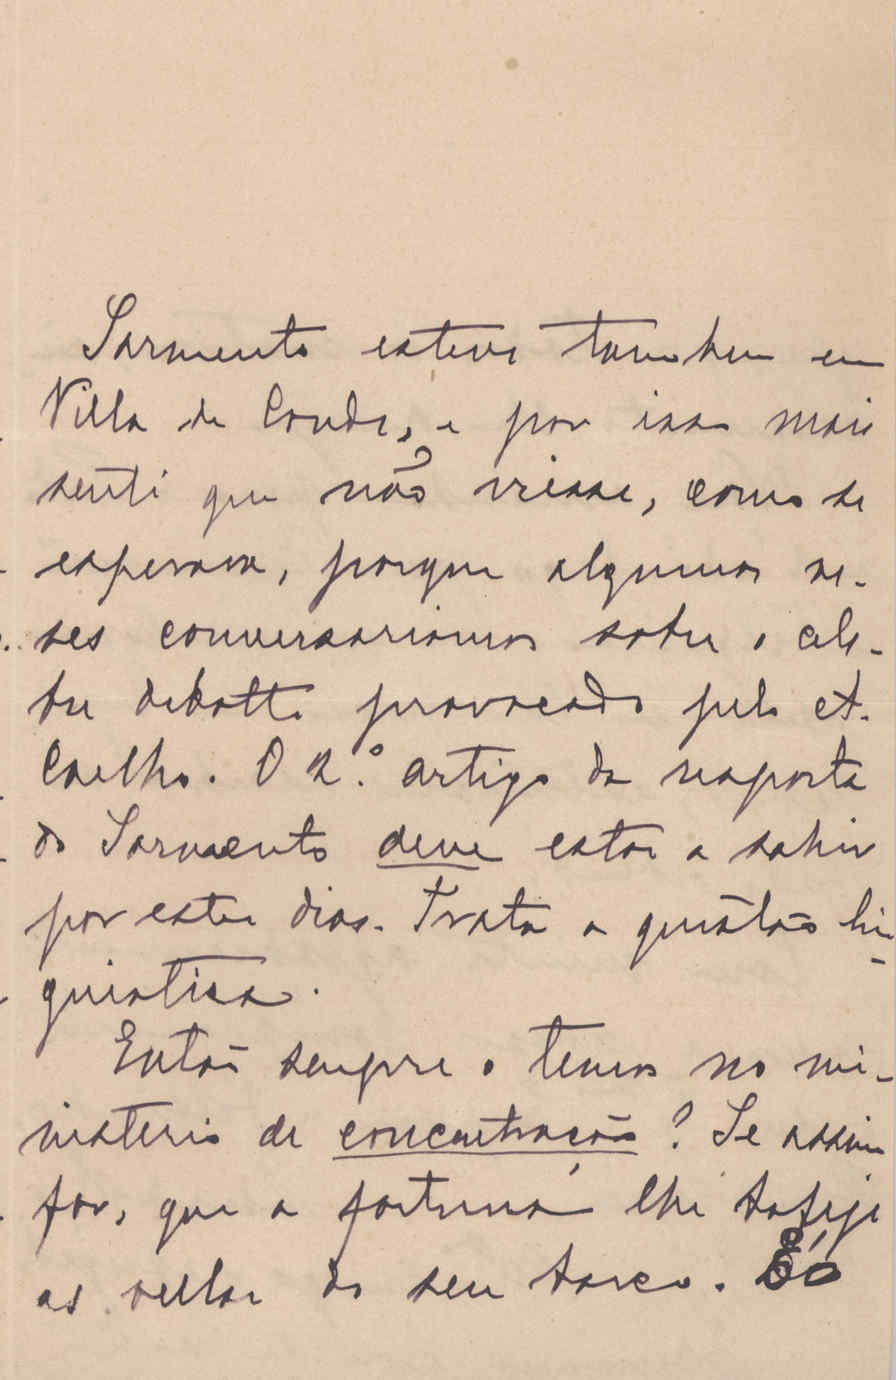 Sarmento esteve tambem em
Villa de Conde, e por isso mais
senti que não viesse, como se
esperava, porque algumas ve-
ses conversariamos sobre o cele-
bre debatte provocado pelo A.
Coelho. O 2.º artigo da resposta
do Sarmento deve estar a sahir
por estes dias. Trata a questão lin-
guistica.
Então sempre o temos no mi-
nisterio de concentração? Se assim
for, que a fortuna lhe bafeje
as vellas do seu barco. É o